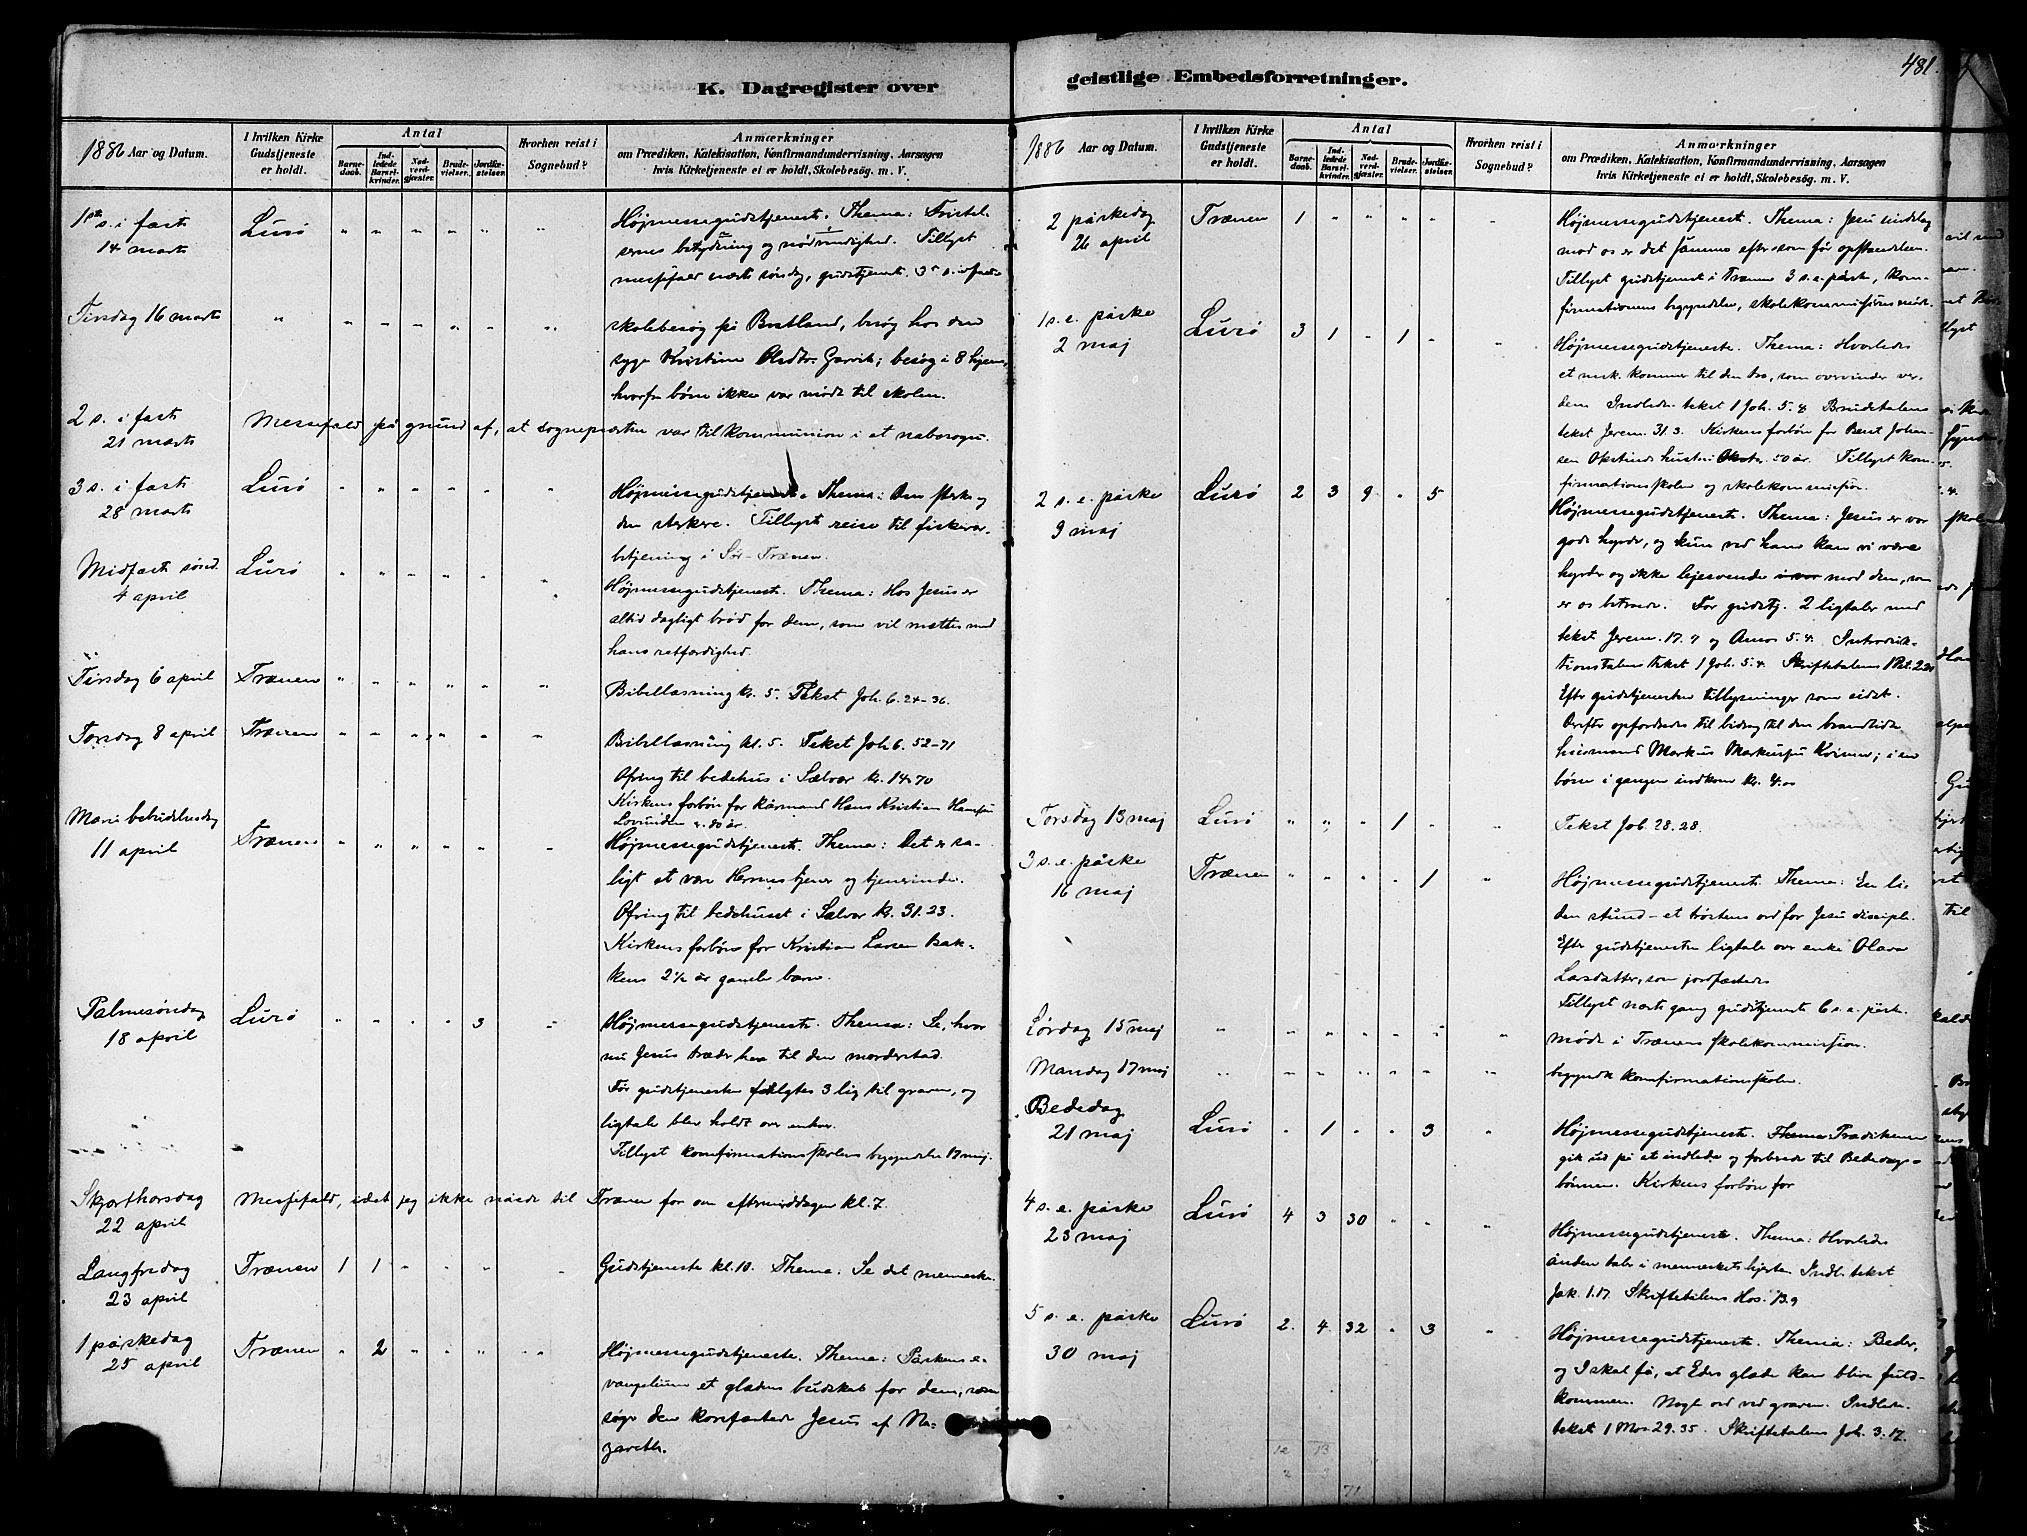 K. Dagregister over
1886 Aar og Datum.
I hvilken Kirke Gudstjeneste er holdt.
Antal
Barnedaab.
Indledede Barselkvinder.
Nadverdgjæster.
Brudevielser.
Jordfæstelser.
Hvorhen reist i Sognebud?
Anmærkninger
om Prædiken, Katekisation, Konfirmandundervisning, Aarsagen
hvis Kirketjeneste ei er holdt, Skolebesøg. m. V.
1ste s. i faste
14 marts
Lurö " " " " " "
Højmessegudstjeneste. Thema: Fristel-
sernes betydning og nødvendighed. Tillyst
messefald næste søndag, gudstjeneste 3 s. i faste
Tirsdag 16 marts " " " " " " "
skolebesøg på Bratland, besøg hos den
syge Kristine Olsdtr. Garvik; besøg i 8 hjem,
hvorfra børn ikke var mødt til skolen.
2 s. i faste
21 marts
Messefald på grund af, at sognepræsten var til kommunion i et nabosogn.
3 s. i faste
28 marts
Lurö " " " " " "
Højmessegudstjeneste. Thema: Den sterke og
den sterkere. Tillyst reise til fiskevær-
betjening i Sør-Trænen.
Midfaste sønd.
4 april
Lurö " " " " " "
Højmessegudstjeneste. Thema: Hos Jesus er
altid dagligt brød for dem, som vil mættes med
hans retfærdighed.
Tirsdag 6 april Trænen " " " " " "
Bibellæsning kl. 5. Tekst Joh. 6. 24-36.
Torsdag 8 april Trænen " " " " " "
Bibellæsning kl. 5. Tekst Joh 6. 52-71
Ofring til bedehus i Selvær kr. 14.70
Kirkens forbøn for kårmand Hans Kristian Hansen
Lovunden
Marie bebudelsesdag
11 april
Trænen " " " " " "
Højmessegudstjeneste. Thema: Det er sa-
ligt at være Herrens tjener og tjenerinde.
Ofring til bedehuset i Selvær kr. 31.23.
Kirkens forbøn for Kristian Larsen Bak-
kens 2½ år gamle barn.
Palmesöndag
18 april
Lurö " " " " 3 "
Højmessegudstjeneste. Thema: Se, hvor
nu Jesus træder hen til den morderstad.
Før gudstjenesten fulgtes 3 lig til graven, og
ligtale blev holdt over enhver.
Tillyst konfirmationsskolens begyndelse 17 maj.
Skjærthorsdag
22 april
Messefald, idet jeg ikke nåede til Trænen før om eftermiddagen kl. 7.
Langfredag
23 april
Trænen 1 1 " " " "
Gudstjeneste kl. 10. Thema: Se det menneske.
1 påskedag
25 april
Trænen " 2 " " " "
Højmessegudstjeneste. Thema: Påskens e-
vangelium et glædens budskab for dem, som
søge den korsfæstede Jesus af Na-
zareth.
geistlige Embedsforretninger.
481.
1886 Aar og Datum.
I hvilken Kirke Gudstjeneste er holdt.
Antal
Barnedaab.
Indledede Barselkvinder.
Nadverdgjæster.
Brudevielser.
Jordfæstelser.
Hvorhen reist i Sognebud?
Anmærkninger
om Prædiken, Katekisation, Konfirmandundervisning, Aarsagen
hvis Kirketjeneste ei er holdt, Skolebesøg. m. V.
2 påskedag
26 april
Trænen 1 " " " " "
Højmessegudstjeneste. Thema: Jesu sindelag
mod os er det samme efter som før opstandelsen.
Tillyst gudstjeneste i Trænen 3 s. e. påske, kon-
firmationens begyndelse, skolekommissions møde.
1 s. e. påske
2 maj
Lurö 3 1 " 1 " "
Højmessegudstjeneste. Thema: Hvorledes
et msk. kommer til den tro, som overvinder ver-
den. Indledn. tekst 1 Joh. 5. 4. Brudetalens
tekst Jerem. 31. 3. Kirkens forbøn for Bent Johan-
sen Okstinds hustru 50 år. Tillyst kon-
firmationsskolen og skolekommission.
2 s. e. påske
9 maj
Lurö 2 3 9 " 5
Højmessegudstjeneste. Thema: Jesus er vor
gode hyrde, og kun ved ham kan vi være
hyrder og ikke lejesvende mod dem, som
er os betroede. Før gudstj. 2 ligtaler med
tekst Jerem. 17. 7 og Amos 5. 4. Introduk-
tionstalens tekst 1 Joh. 5. 4. Skriftetalens 1 Pet. 2.25
Efter gudstjenesten tillysninger som sidst.
Derefter opfordredes til bidrag til den brandlidte
husmand Markus Markussen Kvinen; i en
bøsse i gangen indkom kr. 4.00
Torsdag 13 maj Lurö " " " 1 " "
Tekst Job 28. 28.
3 s. e. påske
16 maj
Trænen " " " " 1 "
Højmessegudstjeneste. Thema: En li-
den stund - et trøstens ord for Jesu disciple.
Efter gudstjenesten ligtale over enke Olava
Larsdatter, som jordfæstedes
Tillyst næste gang gudstjeneste 6 s. e. påske.
Lørdag 15 maj " " " " " " "
møde i Trænens skolekommission.
Mandag 17 maj " " " " " " "
begyndte konfirmationsskolen.
Bededag
21 maj
Lurö " 1 " " 3 "
Højmessegudstjeneste. Thema Prædikenen
gik ud på at indlede og forberede til Bededags-
bønnen. Kirkens forbøn for
4 s. e. påske
23 maj
Lurö 4 3 30 " " "
Højmessegudstjeneste. Thema: Hvorledes
ånden taler i menneskets hjerte. Indl. tekst
Jak. 1. 17. Skriftetalens Hos. 13.9
5 s. e. påske
30 maj
Lurö 2 4 32 " 3 "
Højmessegudstjeneste. Thema: Beder,
og I skal få, at Eders glæde kan blive fuld-
kommen. Nogle ord ved graven. Indledn.
tekst 1 Mos. 29. 35. Skriftetalens Joh. 3. 17.
12 13
71